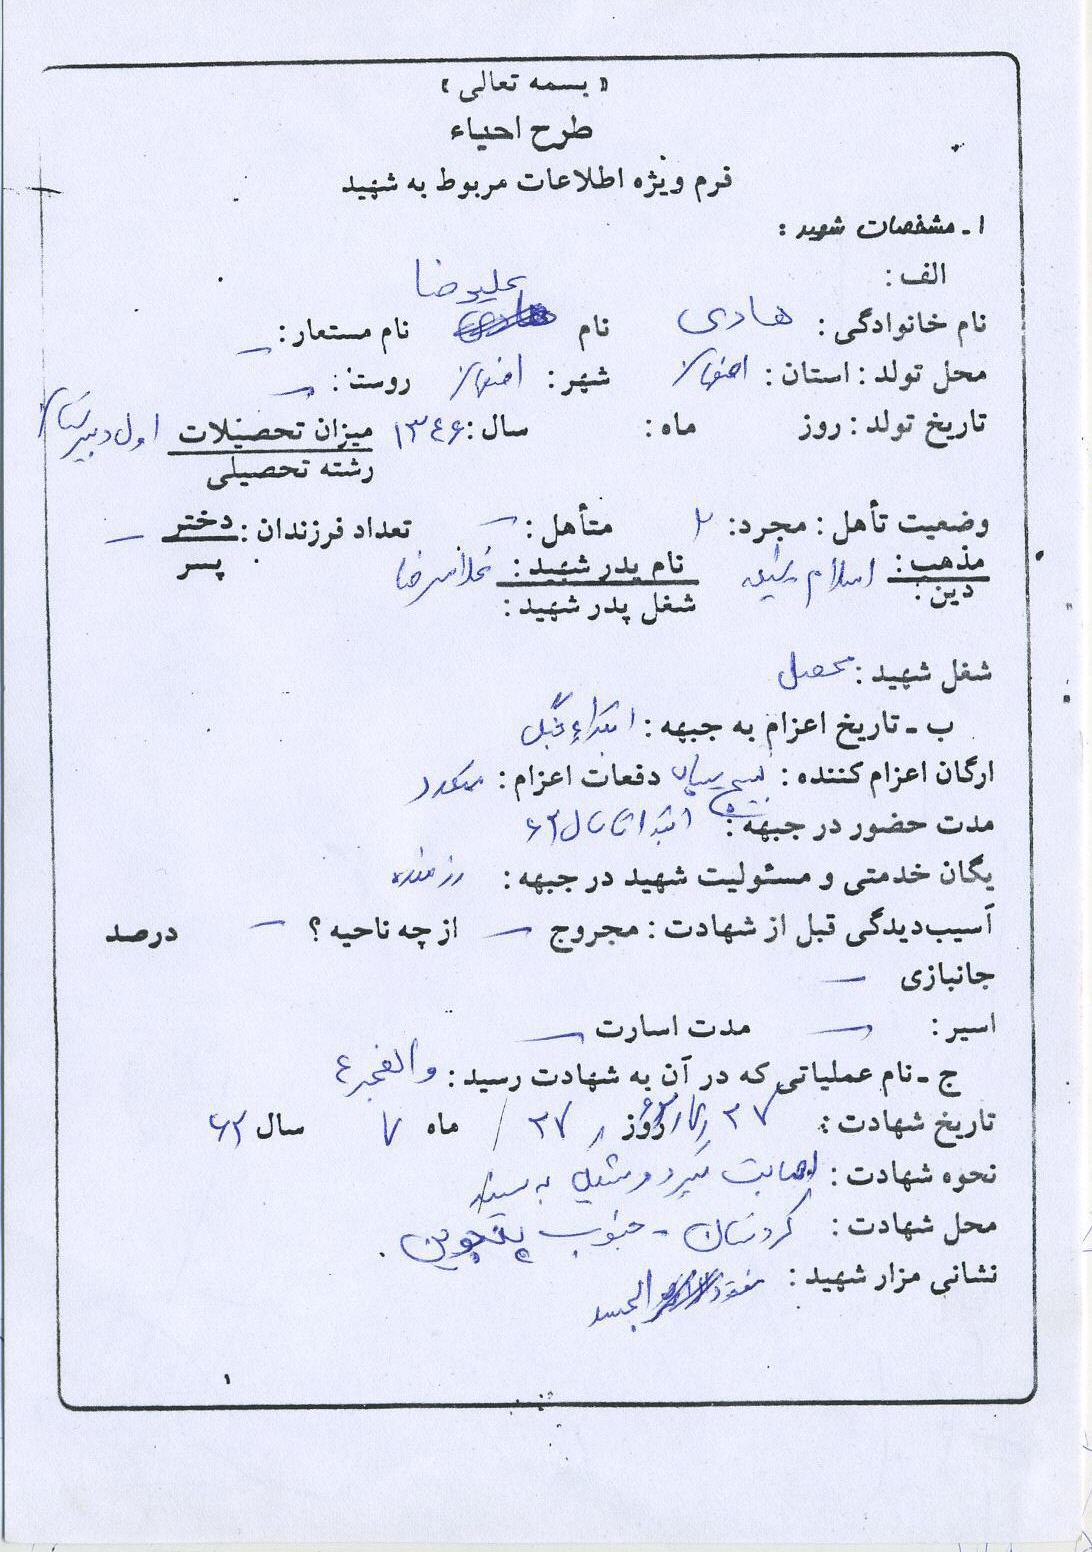 « بسمه تعالی »
طرح احیاء
فرم ویژه اطلاعات مربوط به شهید
۱ ـ مشخصات شهید :
الف :
نام خانوادگی : هادی نام علیرضا نام مستعار : —
محل تولد : استان : اصفهان شهر : اصفهان روستا : —
تاریخ تولد : روز ماه : سال : ۱۳۴۶ میزان تحصیلات اول دبیرستان
رشته تحصیلی
وضعیت تأهل : مجرد : متأهل : — تعداد فرزندان : دختر —
پسر
مذهب : اسلام شیعه نام پدر شهید : غلامرضا
دین : شغل پدر شهید :
شغل شهید : محصل
ب ـ تاریخ اعزام به جبهه : ابتداء جنگ
ارگان اعزام کننده : بسیج سپاه دفعات اعزام : متعدد
مدت حضور در جبهه : ابتدا تا سال ۶۲
یگان خدمتی و مسئولیت شهید در جبهه : رزمنده
آسیب‌دیدگی قبل از شهادت : مجروح — از چه ناحیه ؟ — درصد
جانبازی —
اسیر : — مدت اسارت —
ج ـ نام عملیاتی که در آن به شهادت رسید : والفجر ۴
تاریخ شهادت : ۲۷ / ۷ / ۶۲ روز ۲۷ / ماه ۷ سال ۶۲
نحوه شهادت : اصابت تیر به سینه
محل شهادت : کردستان - جنوب پنجوین .
نشانی مزار شهید : مفقود الجسد
۱